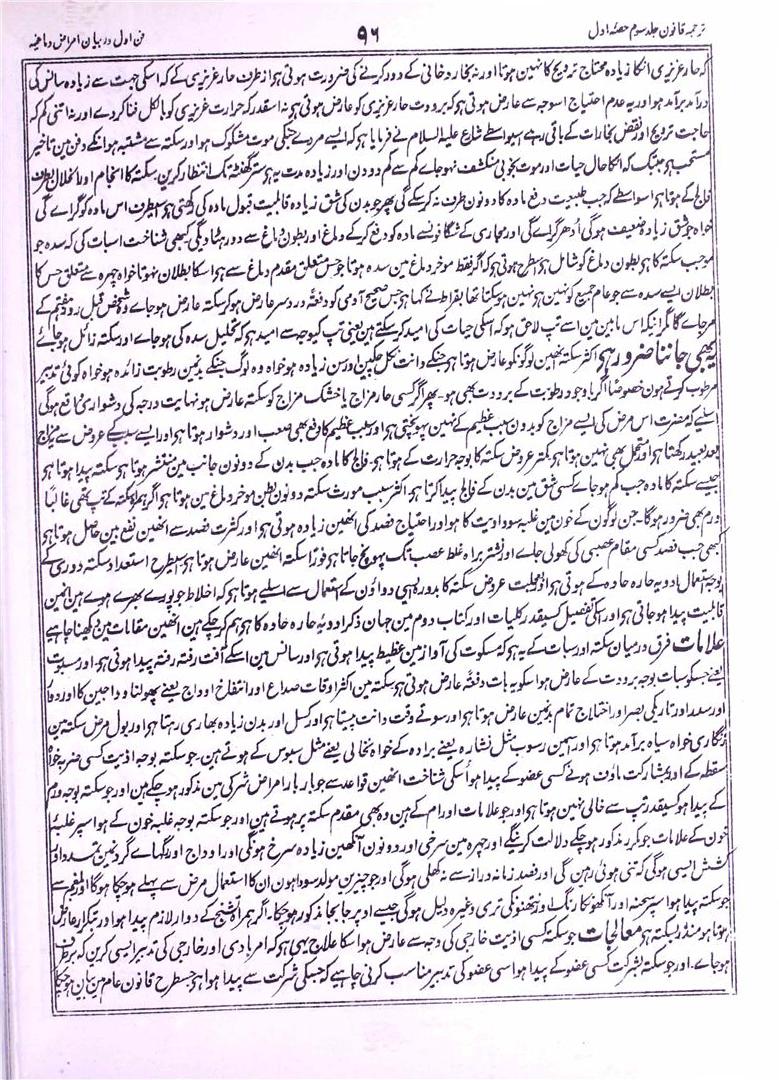 ترجمہ قانون جلد سوم حصہ اول ۹۶ فن اول در بیان امراض دماغیہ
کہ حار غریزی انکا زیادہ محتاج ترویح کا نہین ہوتا اور نہ بخار دخانی کے دور کرنے کی ضرورت ہوتی ہو از طرف حار غریزی کے کہ اسکی جہت سے زیادہ سانس کی
درآمد برآمد ہو اور یہ عدم احتیاج اسوجہ سے عارض ہوتی ہو کہ برودت حار غریزی کو عارض ہوتی ہو نہ اسقدر کہ حرارت غریزی کو بالکل فنا کردے اور نہ اتنی کم کہ
حاجت ترویح اور نفض بخارات کے باقی رہے اسیواسطے شارع علیہ السلام نے فرمایا ہو کہ ایسے مردے جنکی موت مشکوک ہو اور سکتہ سے مشتبہ ہو انکے دفن مین تاخیر
مستحب ہو جبتک کہ انکا حال حیات اور موت بخوبی منکشف نہوجاے کم سے کم دو دن اور زیادہ مدت یہ ہو بہتر گھنٹہ تک انتظار کرین سکتہ کا انجام اور انحلال بطرف
فالج کے ہوتا ہو اسواسطے کہ جب طبیعت دفع مادہ کا دونون طرف نہ کرسکے گی پھر جو بدن کی شق زیادہ قابلیت قبول مادہ کی رکھتی ہو اسیطرف اس مادہ کو گراے گی
خواہ جو شق زیادہ ضعیف ہوگی اُدھر گراے گی اور مجاری کے شگافون سے مادہ کو دفع کرکے دماغ اور بطون دماغ سے دور ہٹا دیگی کبھی شناخت اس بات کی کہ سدہ جو
موجب سکتہ کا ہو بطون دماغ کو شامل ہو اسطرح ہوتی ہو کہ اگر فقط موخر دماغ مین سدہ ہوتا جو حس متعلق مقدم دماغ سے ہو اسکا بطلان نہوتا خواہ چہرہ سے متعلق حس کا
بطلان ایسے سدہ سے جو عام جمیع کو نہین ہو نہین ہوسکتا تھا بقراط نے کہا ہو جس صحیح آدمی کو دفعۃً درد سر عارض ہو کر سکتہ عارض ہوجاے وہ شخص قبل روز ہفتم کے
مرجاے گا مگر اینکہ اس مابین مین اسے تپ لاحق ہو کہ اسکی حیات کی امید کرسکتے ہین یعنی تپ کیوجہ سے امید ہو کہ تحلیل سدہ کی ہوجاے اور سکتہ زائل ہوجاے
یہ بھی جاننا ضرور ہو اکثر سکتہ انھین لوگونکو عارض ہوتا ہو جنکے دانت نکل چکے ہین اور سن زیادہ ہو خواہ وہ لوگ جنکے بدنمین رطوبت زائد ہو خواہ کوئی تدبیر
مرطوب کرتے ہون خصوصاً اگر باوجود رطوبت کے برودت بھی ہو۔ پھر اگر کسی حار مزاج یا خشک مزاج کو سکتہ عارض ہو نہایت درجہ کی دشواری واقع ہوگی
اسلیے کہ مضرت اس مرض کی ایسے مزاج کو بدون سبب عظیم کے نہین پہونچتی ہو اور سبب عظیم کا دفع بھی صعب اور دشوار ہوتا ہو اور ایسے سبب کے عروض سے مزاج
بعد بعید رکھتا ہو اور متحمل بھی نہین ہوتا ہو کمتر عروض سکتہ کا بوجہ حرارت کے ہوتا ہو۔ فالج کا مادہ جب بدن کے دونون جانب مین منتشر ہوتا ہو سکتہ پیدا ہوتا ہو
جیسے سکتہ کا مادہ جب کم ہوجاے کسی شق مین بدن کے فالج پیدا کرتا ہو اکثر سبب مورث سکتہ دونون بطن موخر دماغ مین ہوتا ہو اگر ہمراہ سکتہ کے تپ بھی غالباً
ورم بھی ضرور ہوگا۔ جن لوگون کے خون مین غلبہ سوداویت کا ہو اور احتیاج فصد کی انھین زیادہ ہوتی ہو اور کثرت فصد سے انھین نفع بین حاصل ہوتا ہو
کبھی جب فصد کسی مقام عصبی کی کھولی جاے اور نشتر براہ غلط عصب تک پہونچ جاتا ہو فوراً سکتہ انھین عارض ہوتا ہو اسیطرح استعداد سکتہ دوری کے
بوجہ استعمال ادویہ حارہ حادہ کے ہوتی ہو اور قابلیت عروض سکتہ کا بدورہ ایسی دواؤن کے استعمال سے اسلیے ہوتا ہو کہ اخلاط جو پورے بھرے ہوے ہین انمین
قابلیت پیدا ہوجاتی ہو اور اسکی تفصیل کسیقدر کلیات اور کتاب دوم مین جہان ذکر ادویہ حارہ حادہ کا ہو ہم کرچکے ہین انھین مقامات مین دیکھنا چاہیے
علامات فرق درمیان سکتہ اور سبات کے یہ ہو کہ سکوت کی آواز مین غطیط پیدا ہوتی ہو اور سانس مین اسکے آفت رفتہ رفتہ پیدا ہوتی ہو۔ اور مسبوت
یعنے جسکو سبات بوجہ برودت کے عارض ہو اسکو یہ بات دفعۃً عارض ہوتی ہو سکتہ مین اکثر اوقات صداع اور انتفاخ اوداج یعنے پھولنا وداجین کا اور دوار
اور سدر اور تاریکی بصر اور اختلاج تمام بدنمین عارض ہوتا ہو اور سوتے وقت دانت پیستا ہو اور کسل اور بدن زیادہ بھاری رہتا ہو اور بول مرض سکتہ مین
زنگاری خواہ سیاہ برآمد ہوتا ہو اور اسمین رسوب مثل نشارہ یعنے برادہ کے خواہ نخالی یعنے مثل سبوس کے ہوتے ہین۔ جو سکتہ بوجہ اذیت کسی ضربہ خواہ
سقطہ کے اور بمشارکت ماؤف ہونے کسی عضو کے پیدا ہو اُسکی شناخت انھین قواعد سے جو بار بار امراض شرکی مین مذکور ہوچکے ہین اور جو سکتہ بوجہ ورم
کے پیدا ہو کسیقدر تپ سے خالی نہین ہوتا ہو اور جو علامات اورام کے ہین وہ بھی مقدم سکتہ پر ہوتے ہین اور جو سکتہ بوجہ غلبہ خون کے ہو اسپر غلبۂ
خون کے علامات جو مکرر مذکور ہوچکے دلالت کرینگے اور چہرہ مین سرخی اور دونون آنکھین زیادہ سرخ ہونگی اور اوداج اور رگہاے گردنمین تمدد اور
کشش ایسی ہوگی کہ تنی ہوئی رہین گی اور فصد زمانہ دراز سے نہ کھلی ہوگی اور جو چیزین مولد سودا ہون ان کا استعمال مرض سے پہلے ہوچکا ہوگا اور بلغم سے
جو سکتہ پیدا ہو اسپر سحنہ اور آنکھونکا رنگ اور نتھنونکی تری وغیرہ دلیل ہوگی جیسے اوپر جابجا مذکور ہوچکا۔ اگر ہمراہ تشنج کے دوار لازم پیدا ہو اور بتکرار عارض
ہوتا ہو منذر بسکتہ ہو معالجات جو سکتہ کسی اذیت خارجی کی وجہ سے عارض ہو اسکا علاج یہی ہو کہ امر بادی اور خارجی کی تدبیر ایسی کرین کہ برطرف
ہوجاے۔ اور جو سکتہ بشرکت کسی عضو کے پیدا ہوا اسی عضو کی تدبیر مناسب کرنی چاہیے کہ جسکی شرکت سے پیدا ہوا ہو جسطرح قانون عام مین بیان ہوچکا